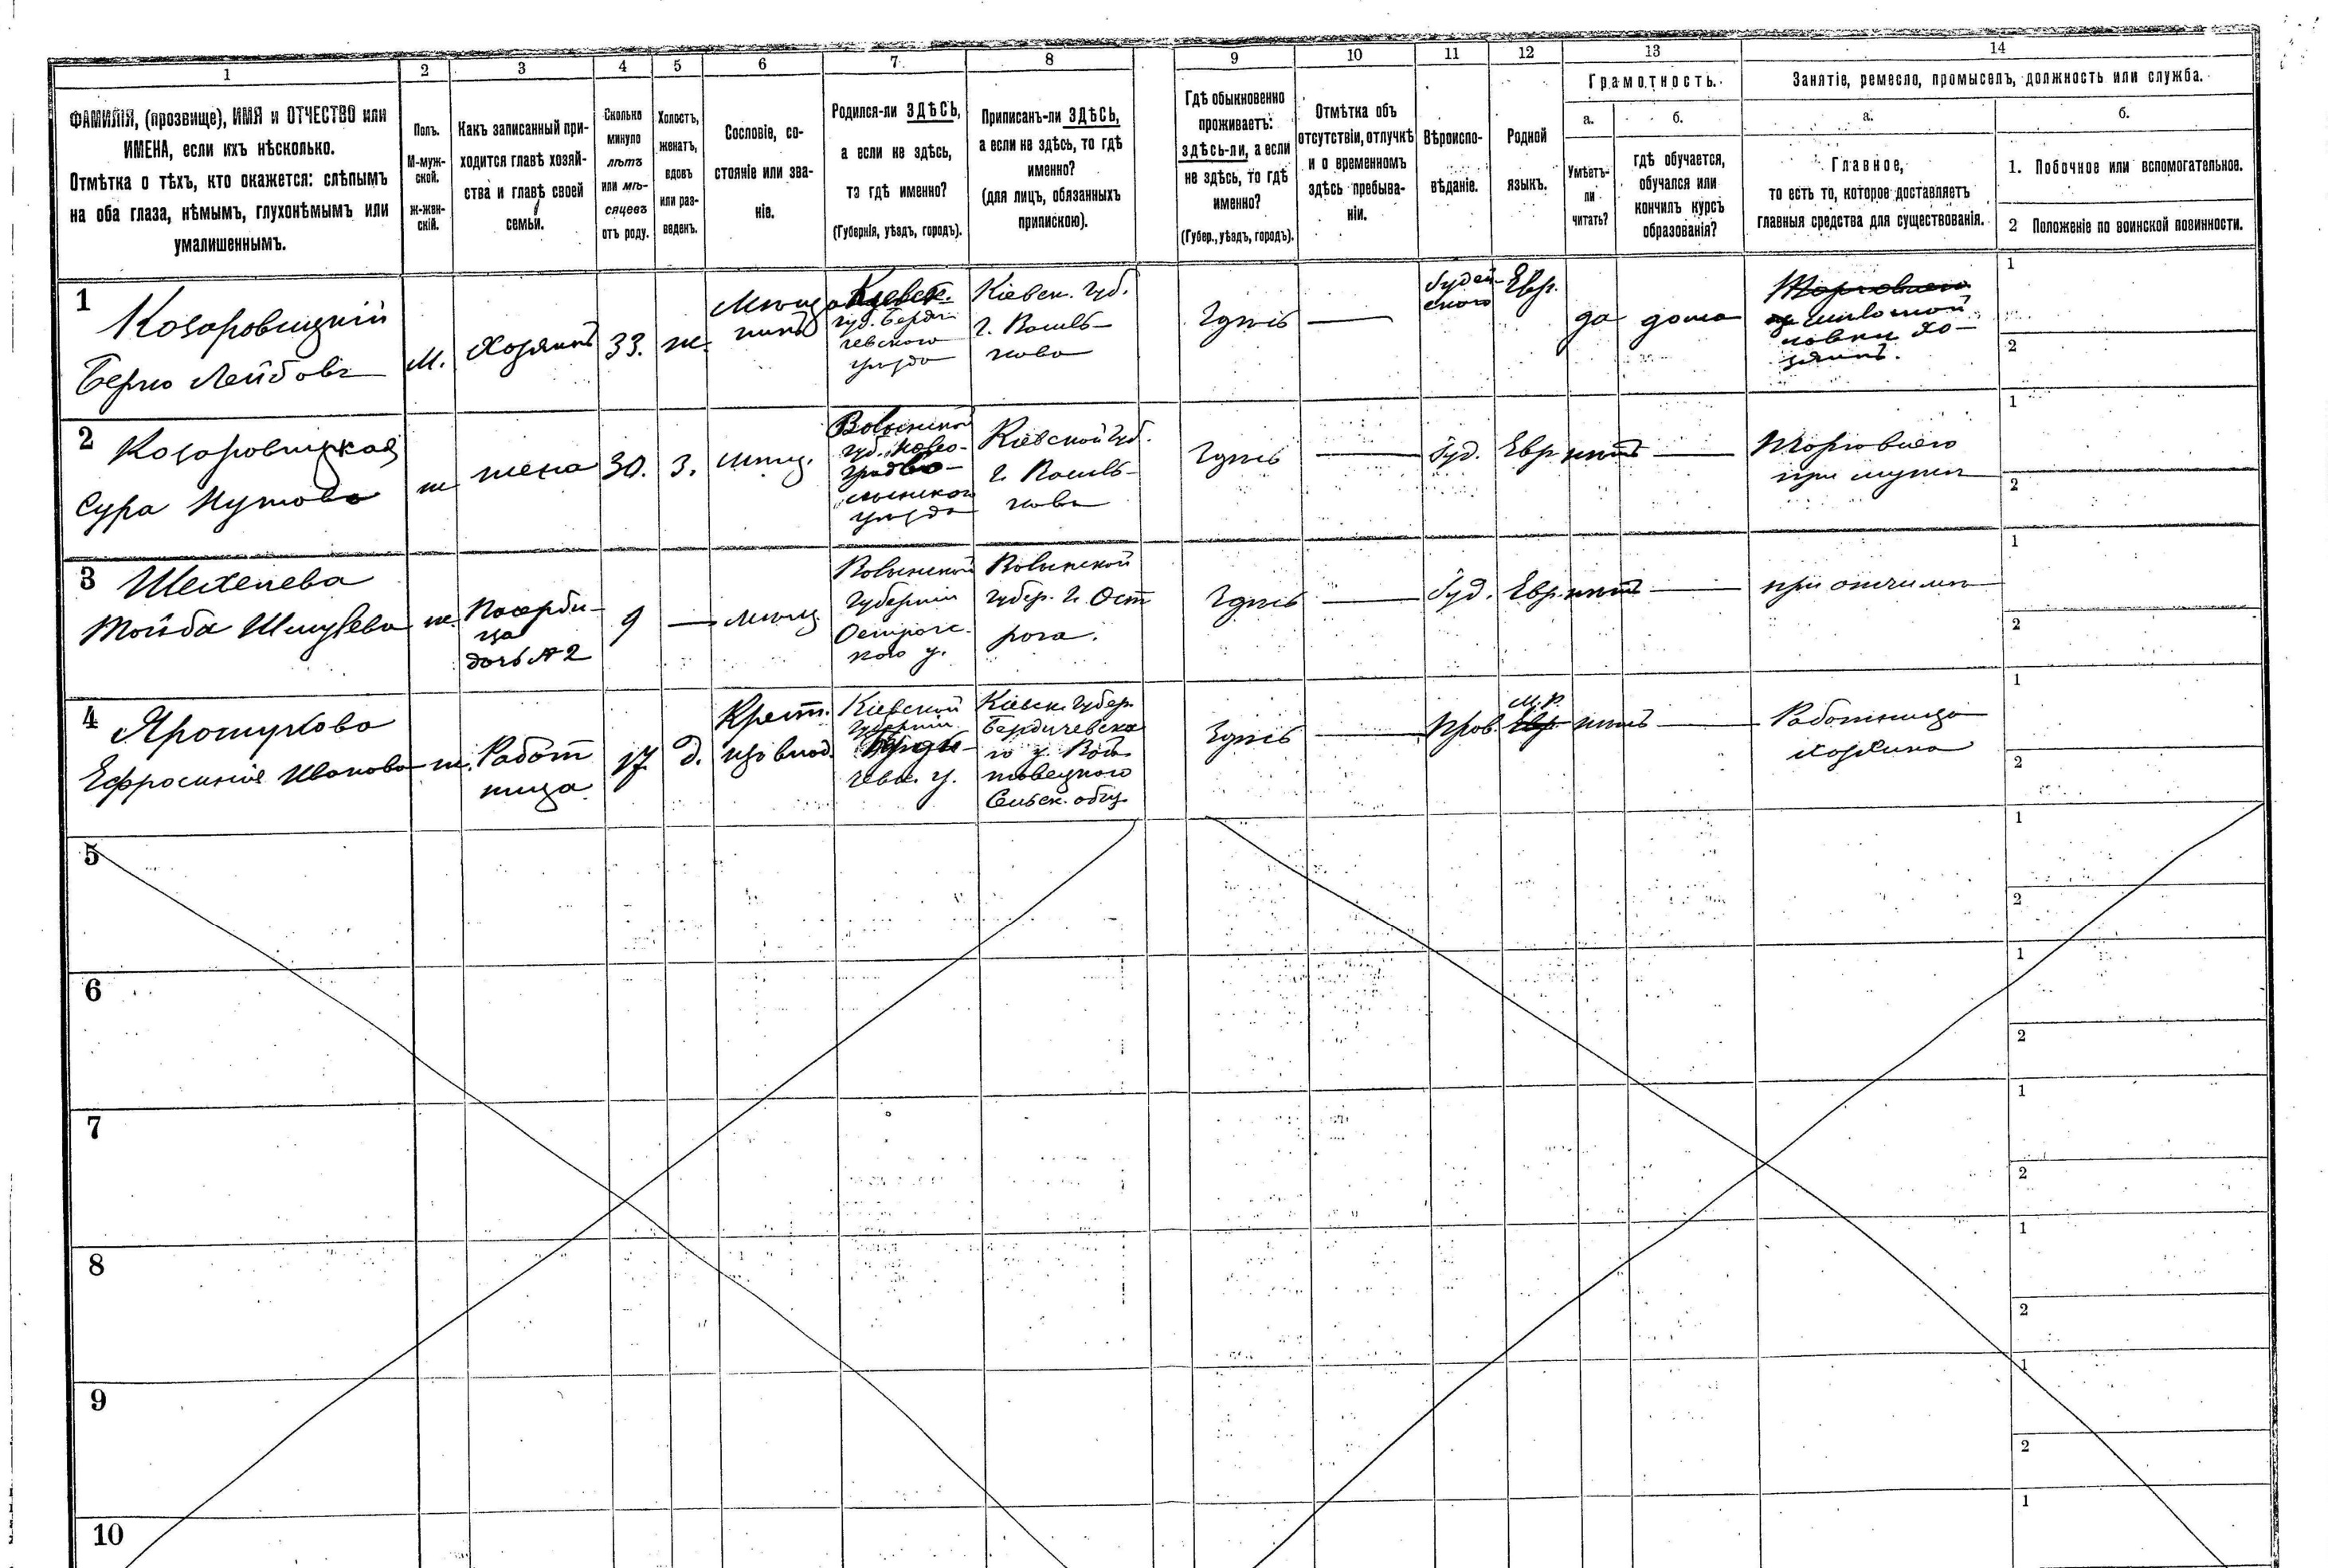 1
2
3
4
5
6
7
8
9
10
11
12
13
14
ФАМИЛІЯ, (прозвище), ИМЯ и ОТЧЕСТВО или
ИМЕНА, если ихъ нѣсколько.
Отмѣтка о тѣхъ, кто окажется: слѣпымъ
на оба глаза, нѣмымъ, глухонѣмымъ или
умалишеннымъ.
Полъ.
М-муж-
ской.
ж-жен-
скій.
Какъ записанный при-
ходится главѣ хозяй-
ства и главѣ своей
семьи.
Сколько
минуло
лѣтъ
или мѣ-
сяцевъ
отъ роду.
Холостъ,
женатъ,
вдовъ
или раз-
веденъ.
Сословіе, со-
стояніе или зва-
ніе.
Родился-ли ЗДѢСЬ,
а если не здѣсь,
то гдѣ именно?
(Губернія, уѣздъ, городъ).
Приписанъ-ли ЗДѢСЬ,
а если не здѣсь, то гдѣ
именно?
(для лицъ, обязанныхъ
припискою).
Гдѣ обыкновенно
проживаетъ:
здѣсь-ли, а если
не здѣсь, то гдѣ
именно?
(Губер., уѣздъ, городъ).
Отмѣтка объ
отсутствіи, отлучкѣ
и о временномъ
здѣсь пребыва-
ніи.
Вѣроиспо-
вѣданіе.
Родной
языкъ.
Грамотность.
а.
Умѣетъ-
ли
читать?
б.
гдѣ обучается,
обучался или
кончилъ курсъ
образованія?
Занятіе, ремесло, промыселъ, должность или служба.
а.
Главное,
то есть то, которое доставляетъ
главныя средства для существованія.
б.
1. Побочное или вспомогательное.
2 Положеніе по воинской повинности.
1
Козаровицкій
Берко Лейбовъ
М.
Хозяинъ
33.
ж.
Мѣща
нинъ
Кіевск.
губ. Берди
чевского
уѣзда
Кіевск. Губ.
г. Василь-
кова
Здѣсь
Іудей-
ского
Евр.
да
дома
хо-
зяинъ.
1
2
2
Козаровицкая
Сура
ж
жена
30.
З.
мѣщ.
Волынской
губ. Ново-
градво-
лынского
уѣзда
Кіевской Губ.
г. Василь-
кова
Здѣсь
Іуд.
Евр
нѣтъ
Торговлею
при мужѣ
1
2
3
Шехелева
Тойба Шмулева
ж.
Падчери-
ца
дочь № 2
9
мѣщ.
Волынской
Губерніи
Острогс.
кого у.
Волынской
губер. г. Ост
рога.
Здѣсь
Іуд.
Евр
нѣтъ
при отчимѣ
1
2
4
Ярошукова
Ефросинія Иванова
ж.
Работ
ница
17
д.
Крест.
изъ влад.
Кіевской
Губерніи
Берди-
чевк. у.
Кіевск. Губер.
Бердичевска
го у.
Сельск. общ.
Здѣсь
Прав.
М.Р.
Евр
нѣтъ
Работница
хозяина
1
2
5
1
2
6
1
2
7
1
2
8
1
2
9
1
2
10
1